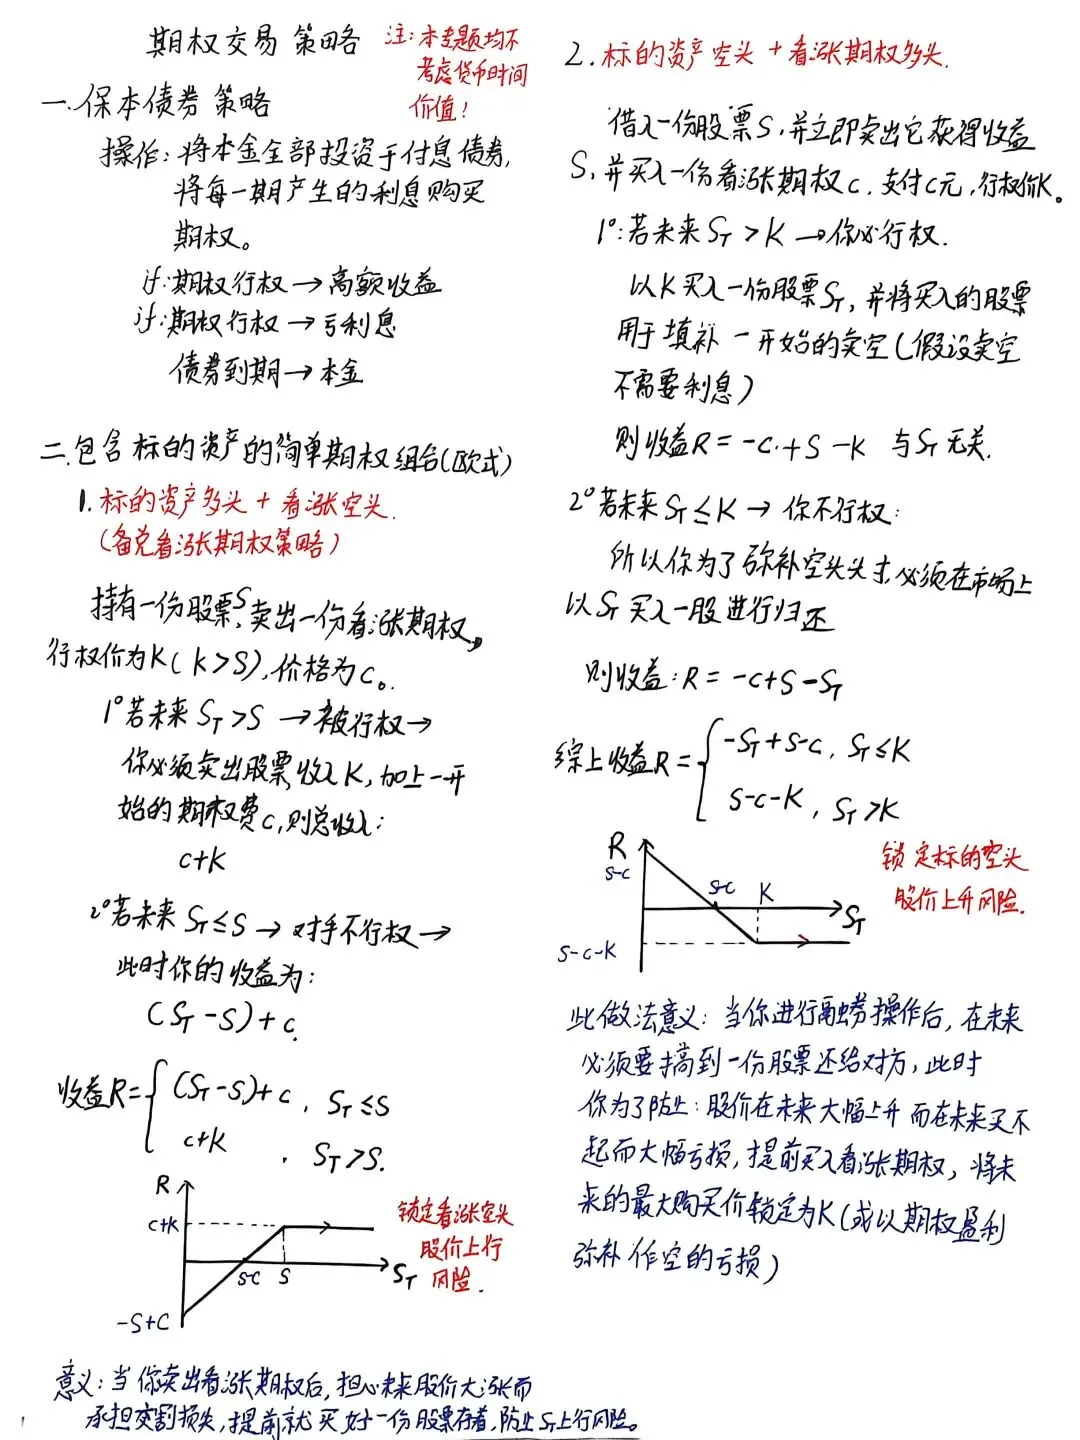 期权交易策略
注:本专题均不
考虑货币时间
价值!
一.保本债券策略
操作:将本金全部投资于付息债券,
将每一期产生的利息购买
期权。
if:期权行权→高额收益
if:期权行权→亏利息
债券到期→本金
二.包含标的资产的简单期权组合(欧式)
1.标的资产多头+看涨空头.
(备兑看涨期权策略)
持有一份股票S,卖出一份看涨期权,
行权价为K(K>S),价格为c。
1°若未来 S_T>S →被行权→
你必须卖出股票,收入K,加上一开
始的期权费c,则总收入:
c+K
2°若未来 S_T≤S → 对手不行权→
此时你的收益为:
(S_T-S)+c.
收益R={ (S_T-S)+c , S_T≤S
c+K , S_T>S.
R
c+K
S-C S S_T
-S+C
锁定看涨空头
股价上行
风险.
意义:当你卖出看涨期权后,担心未来股价大涨而
承担交割损失,提前就买好一份股票存着,防止S_T上行风险。
2.标的资产空头+看涨期权多头.
借入一份股票S,并立即卖出它获得收益
S,并买入一份看涨期权c,支付c元,行权价K。
1°:若未来 S_T>K →你必行权.
以K买入一份股票S_T,并将买入的股票
用于填补一开始的卖空(假设卖空
不需要利息)
则收益R=-c+S-K 与S_T无关.
2°若未来 S_T≤K→ 你不行权:
所以你为了弥补空头头寸,必须在市场上
以S_T买入一股进行归还
则收益:R=-c+S-S_T
综上收益R={ -S_T+S-c, S_T≤K
S-c-K , S_T>K
R
S-C
S-C K
S_T
S-C-K
锁定标的空头
股价上升风险.
此做法意义:当你进行融券操作后,在未来
必须要搞到一份股票还给对方,此时
你为了防止:股价在未来大幅上升而在未来买不
起而大幅亏损,提前买入看涨期权,将未
来的最大购买价锁定为K(或以期权盈利
弥补作空的亏损)